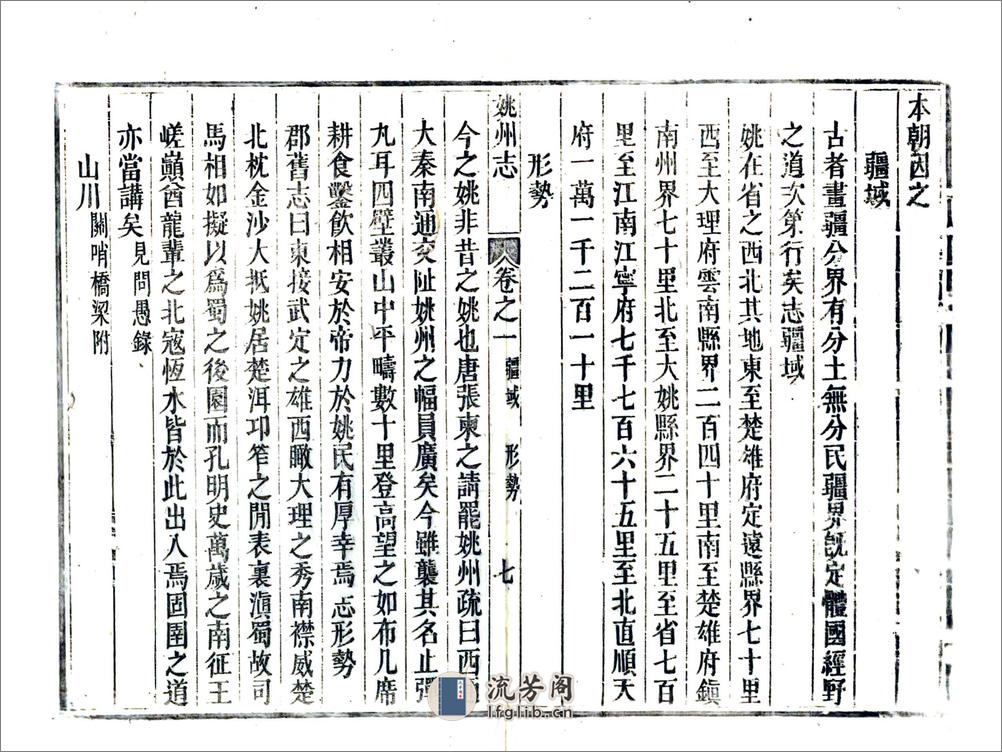 本朝因之
疆域
古者畫疆分界有分土無分民疆界既定體國經野
之道次第行矣志疆域
姚在省之西北其地東至楚雄府定遠縣界七十里
西至大理府雲南縣界二百四十里南至楚雄府鎮
南州界七十里北至大姚縣界二十五里至省七百
里至江南江寧府七千七百六十五里至北直順天
府一萬一千二百一十里
形勢
姚州志 卷之一 疆域 形勢 七
今之姚非昔之姚也唐張柬之請罷姚州疏曰西通
大秦南通交阯姚州之幅員廣矣今雖襲其名止彈
丸耳四壁叢山中平疇數十里登高望之如布几席
耕食鑿飲相安於帝力於姚民有厚幸焉志形勢
郡舊志曰東接武定之雄西瞰大理之秀南襟威楚
北枕金沙人抵姚居楚洱卭笮之閒表裏滇蜀故司
馬相如擬以爲蜀之後園而孔明史萬歲之南征王
嵯巔酋龍輩之北寇恆水皆於此出入焉固圉之道
亦當講矣見問愚錄
山川關哨橋梁附
流芳阁
lfglib.cn